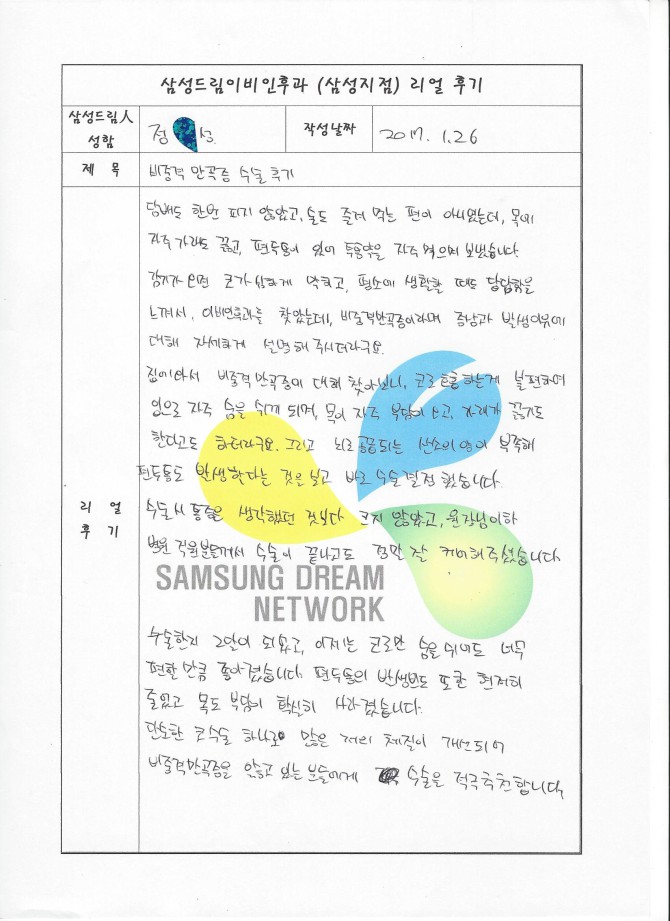 삼성드림이비인후과 (삼성지점) 리얼 후기
삼성드림人 성함
정 석
작성날짜
2017. 1. 26
제 목
비중격 만곡증 수술 후기
리 얼 후 기
담배도 한번 피지 않았고, 술도 즐겨 먹는 편이 아니였는데, 목에
자주 가래도 끓고, 편두통이 있어 두통약을 자주 먹으며 보냈습니다.
감기가 오면 코가 심하게 막히고, 평소에 생활할 때도 답답함을
느껴서, 이비인후과를 찾았는데, 비중격만곡증이라며 증상과 발생이유에
대해 자세하게 설명해 주시더라구요.
집에와서 비중격만곡증에 대해 찾아보니, 코로 호흡하는게 불편하여
입으로 자주 숨을 쉬게 되며, 목이 자주 부담이 오고, 가래가 끓기도
한다고도 하더라구요. 그리고 뇌로 공급되는 산소의 양이 부족해
편두통도 발생한다는 것을 보고 바로 수술결정 했습니다.
수술시 통증은 생각했던 것보다 크지 않았고, 원장님이하
병원 직원분들께서 수술이 끝나고도 정말 잘 케어해주셨습니다.
SAMSUNG DREAM
NETWORK
수술한지 2달이 되었고, 이제는 코로만 숨을 쉬어도 너무
편할 만큼 좋아졌습니다. 편두통의 발생빈도 또한 현저히
줄었고 목도 부담이 확실히 사라졌습니다.
단순한 코수술 하나로 많은 저의 체질이 개선되어
비중격만곡증을 앓고 있는 분들에게 수술을 적극추천합니다.